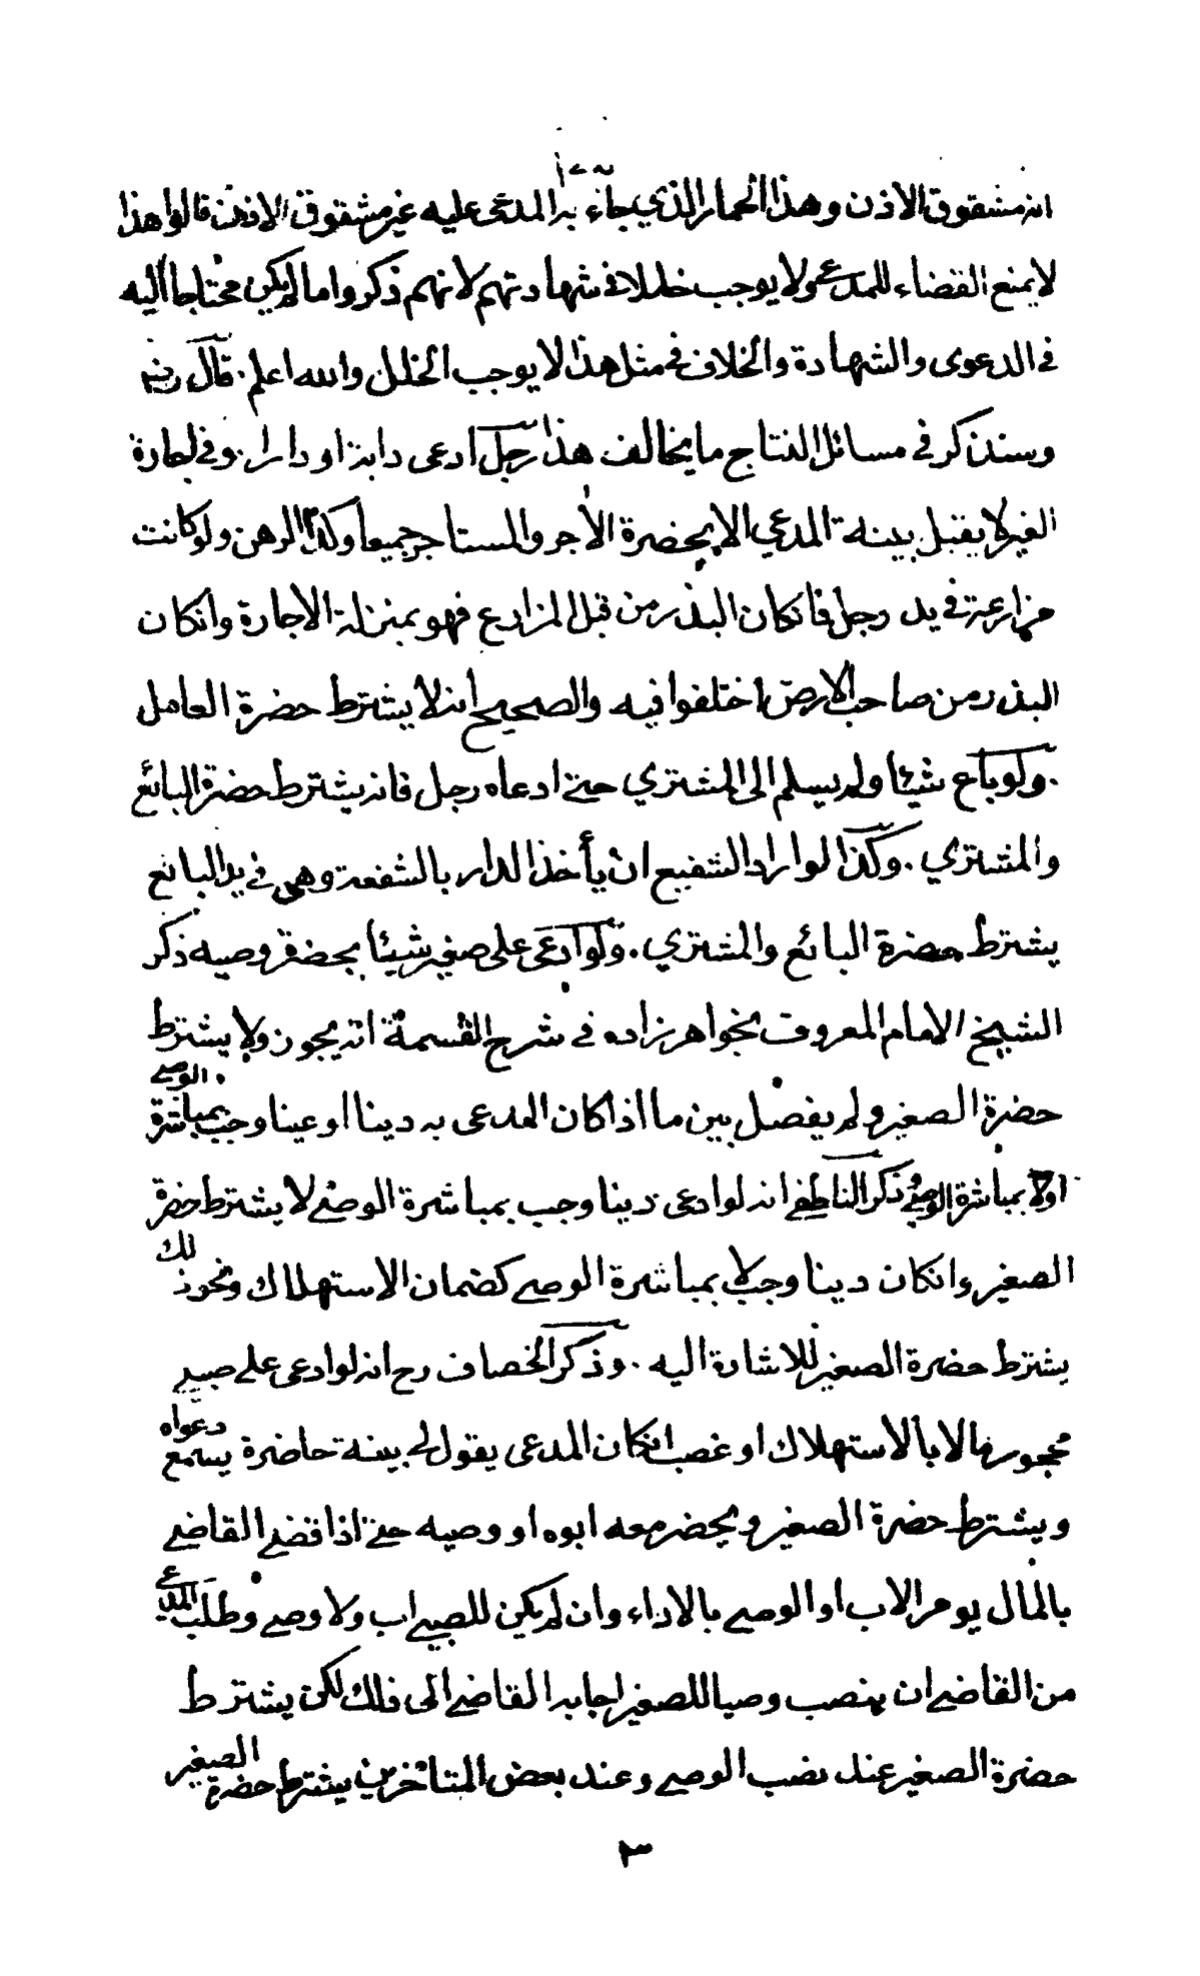 انه مشقوق الاذن وهذا الحمار الذي جاء به المدعى عليه غير مشقوق الاذن قالوا هذا
لا يمنع القضاء للمدعى ولا يوجب خللا في شهادتهم لانهم ذكروا ما لم يكن محتاجا اليه
في الدعوى والشهادة والخلاف في مثل هذا لا يوجب الخلل والله اعلم . قال رضه
وسنذكر في مسائل النتاج ما يخالف هذا رجل ادعى دابة او دارا . وفي اجارة
الغير لا يقبل بينة المدعي الا بحضرة الآجر والمستاجر جميعا وكذا الرهن ولو كانت
مزارعة في يد رجل فانكان البذر من قبل المزارع فهو بمنزلة الاجارة وانكان
البذر من صاحب الارض اختلفوا فيه والصحيح انه لا يشترط حضرة العامل
. ولو باع شيئا ولم يسلم الى المشتري حتى ادعاه رجل فانه يشترط حضرة البائع
والمشتري . وكذا لو اراد الشفيع ان يأخذ الدار بالشفعة وهى في يد البائع
يشترط حضرة البائع والمشتري . ولو ادعى على صغير شيئا بحضرة وصيه ذكر
الشيخ الامام المعروف بخواهر زاده في شرح القسمة انه يجوز ولا يشترط
حضرة الصغير ولم يفصل بين ما اذا كان المدعى به دينا او عينا وجب بمباشرة الوصي
اولا بمباشرة الوصي وذكر الناطفي انه لو ادعى دينا وجب بمباشرة الوصي لا يشترط حضرة
الصغير وانكان دينا وجب لا بمباشرة الوصي كضمان الاستهلاك ونحو ذلك
يشترط حضرة الصغير للاشارة اليه . وذكر الخصاف رح انه لو ادعى على صبي
محجور مالا بالاستهلاك او غصب انكان المدعى يقول لي بينة حاضرة يسمع دعواه
ويشترط حضرة الصغير ويحضر معه ابوه او وصيه حتى اذا قضى القاضي
بالمال يومر الاب او الوصي بالاداء وان لم يكن للصبي اب ولا وصي وطلب المدعي
من القاضي ان ينصب وصيا للصغير اجابه القاضي الى ذلك لكن يشترط
حضرة الصغير عند نصب الوصي وعند بعض المتاخرين يشترط حضرة الصغير
٣